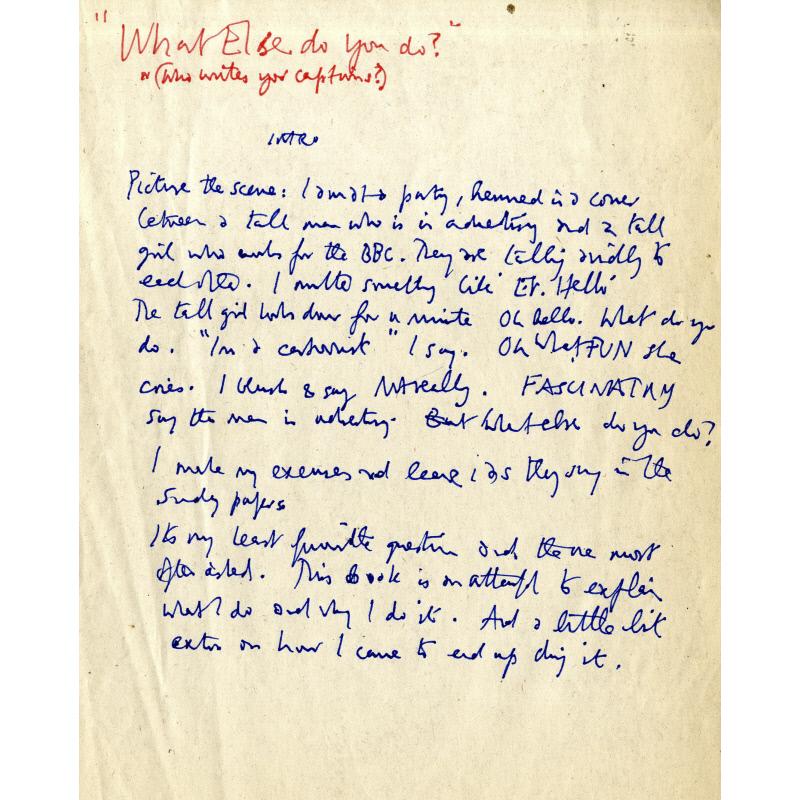 "What Else do you do?"
or (Who writes your captions?)
INTRO
Picture the scene: I am at a party, hemmed in a corner
between a tall man who is in advertising and a tall
girl who works for the BBC. They are talking avidly to
each other. I mutter something like 'Er. Hello'
The tall girl looks down for a minute Oh hello. What do you
do. "I'm a cartoonist" I say. Oh What FUN she
cries. I blush & say Not really. FASCINATING
say the man in advertising. But What else do you do?
I make my excuses and leave as they say in the
Sunday papers
Its my least favourite question and the one most
often asked. This Book is an attempt to explain
what I do and why I do it. And a little bit
extra on how I came to end up doing it.